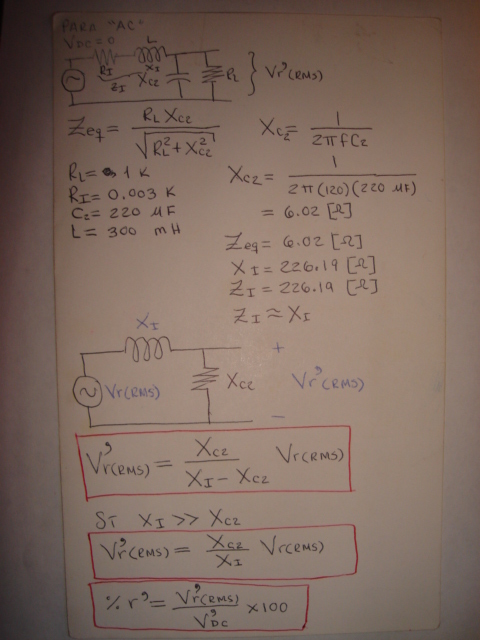 PARA "AC"
VDC = 0
L
RI
XI
ZI
XC2
RL
Vr'(RMS)
Zeq = RL XC2 / √(RL² + XC2²)
XC2 = 1 / 2πfC2
RL = 1 K
RI = 0.003 K
C2 = 220 µF
L = 300 mH
XC2 = 1 / 2π(120)(220 µF)
= 6.02 [Ω]
Zeq = 6.02 [Ω]
XI = 226.19 [Ω]
ZI = 226.19 [Ω]
ZI ≈ XI
XI
+
Vr(RMS)
XC2
Vr'(RMS)
−
Vr'(RMS) = XC2 / XI - XC2 Vr(RMS)
SI XI >> XC2
Vr'(RMS) = XC2 / XI Vr(RMS)
% r' = Vr'(RMS) / V'DC × 100